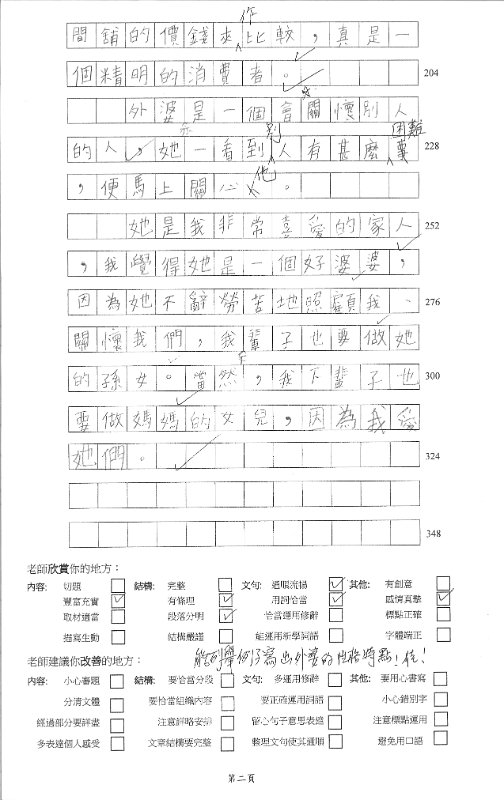 作
間舖的價錢來比較，真是一
個精明的消費者。 204
外婆是一個會關懷別人
的人，她一看到人有甚麼事 228
別
困難
，便馬上關心。
他
她是我非常喜愛的家人 252
，我覺得她是一個好婆婆，
因為她不辭勞苦地照顧我、 276
關懷我們，我輩子也要做她
的孫女。當然，我下輩子也 300
要做媽媽的女兒，因為我愛
她們。 324
348
老師欣賞你的地方：
內容: 切題 結構: 完整 文句: 通順流暢 其他: 有創意
豐富充實 有條理 用詞恰當 感情真摯
取材適當 段落分明 恰當運用修辭 標點正確
描寫生動 結構嚴謹 能運用新學詞語 字體端正
能列舉例子寫出外婆的性格特點！佳！
老師建議你改善的地方：
內容: 小心審題 結構: 要恰當分段 文句: 多運用修辭 其他: 要用心書寫
分清文體 要恰當組織內容 要正確運用詞語 小心錯別字
經過部分要詳盡 注意詳略安排 留心句子意思表達 注意標點運用
多表達個人感受 文章結構要完整 整理文句使其通順 避免用口語
第二頁